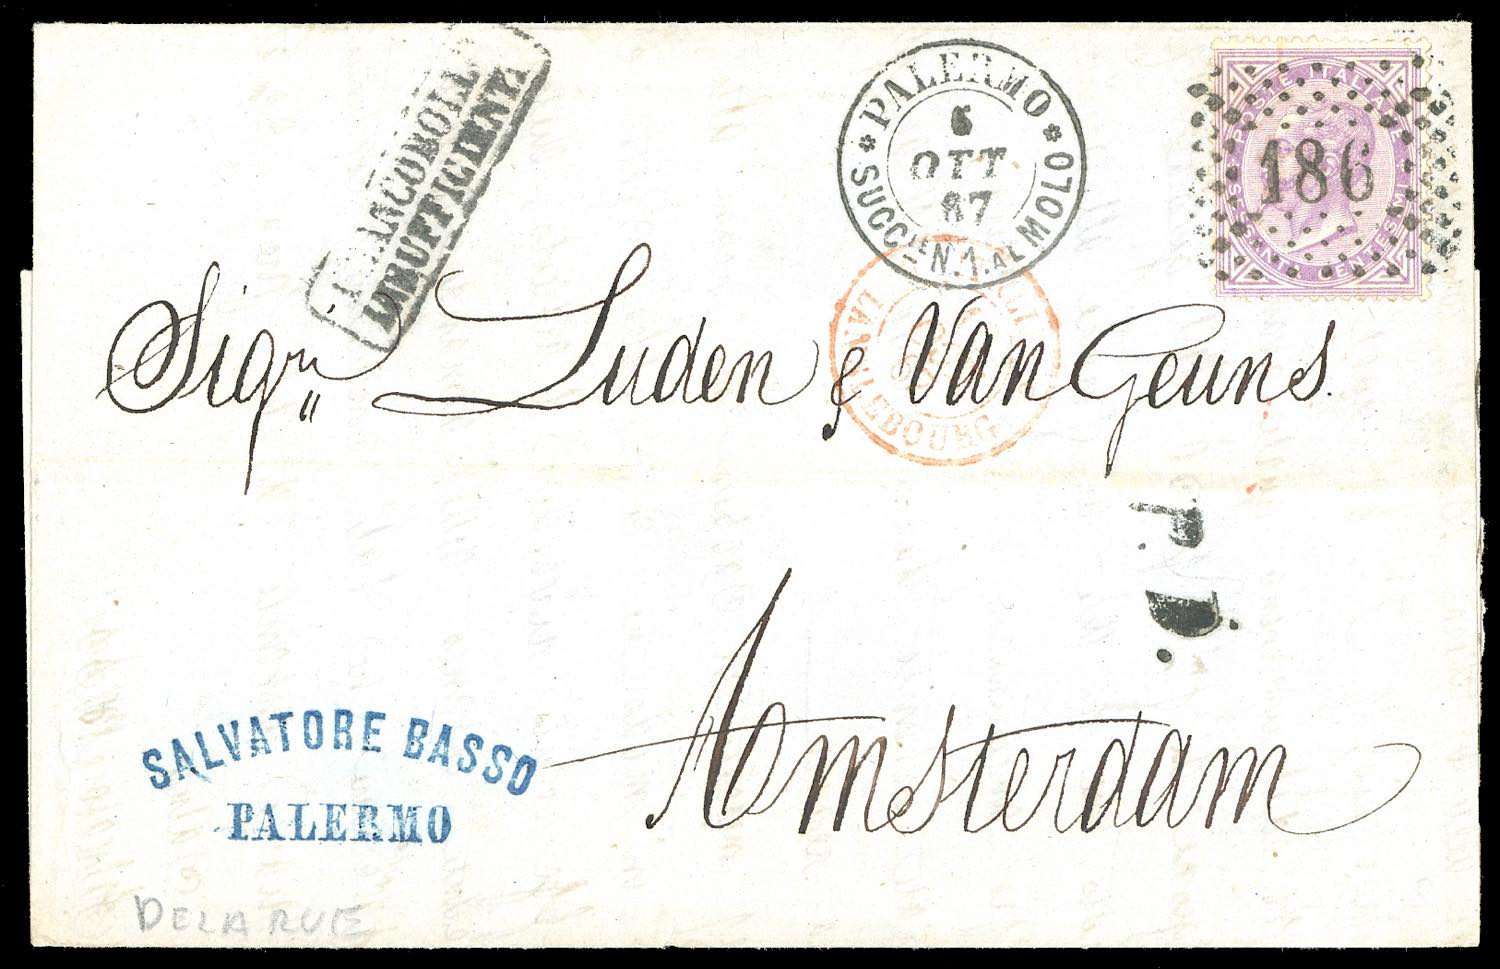 FRANCOBOLLI
INSUFFICIENTI
PALERMO
6
OTT
67
SUCC.LE N.1. AL MOLO
POSTE ITALIANE
SESSANTA CENTESIMI
186
LAR
BOURG
Sigri Luden & Van Geuns.
P.D.
Amsterdam
SALVATORE BASSO
PALERMO
DELARUE